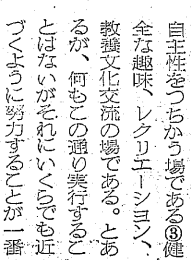 自主性をつちかう場である③健
全な趣味、レクリエーション、
教養文化交流の場である。とあ
るが、何もこの通り実行するこ
とはないがそれにいくらでも近
づくように努力することが一番